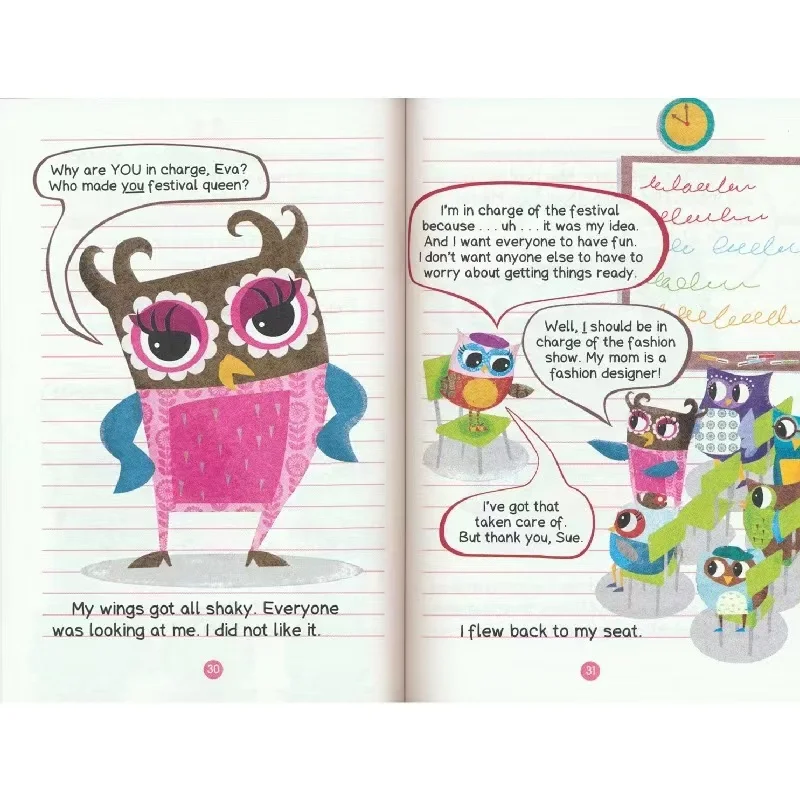 Why are YOU in charge, Eva?
Who made you festival queen?
My wings got all shaky. Everyone
was looking at me. I did not like it.
30
I'm in charge of the festival
because . . . uh . . . it was my idea.
And I want everyone to have fun.
I don't want anyone else to have to
worry about getting things ready.
Well, I should be in
charge of the fashion
show. My mom is a
fashion designer!
I've got that
taken care of.
But thank you, Sue.
I flew back to my seat.
31